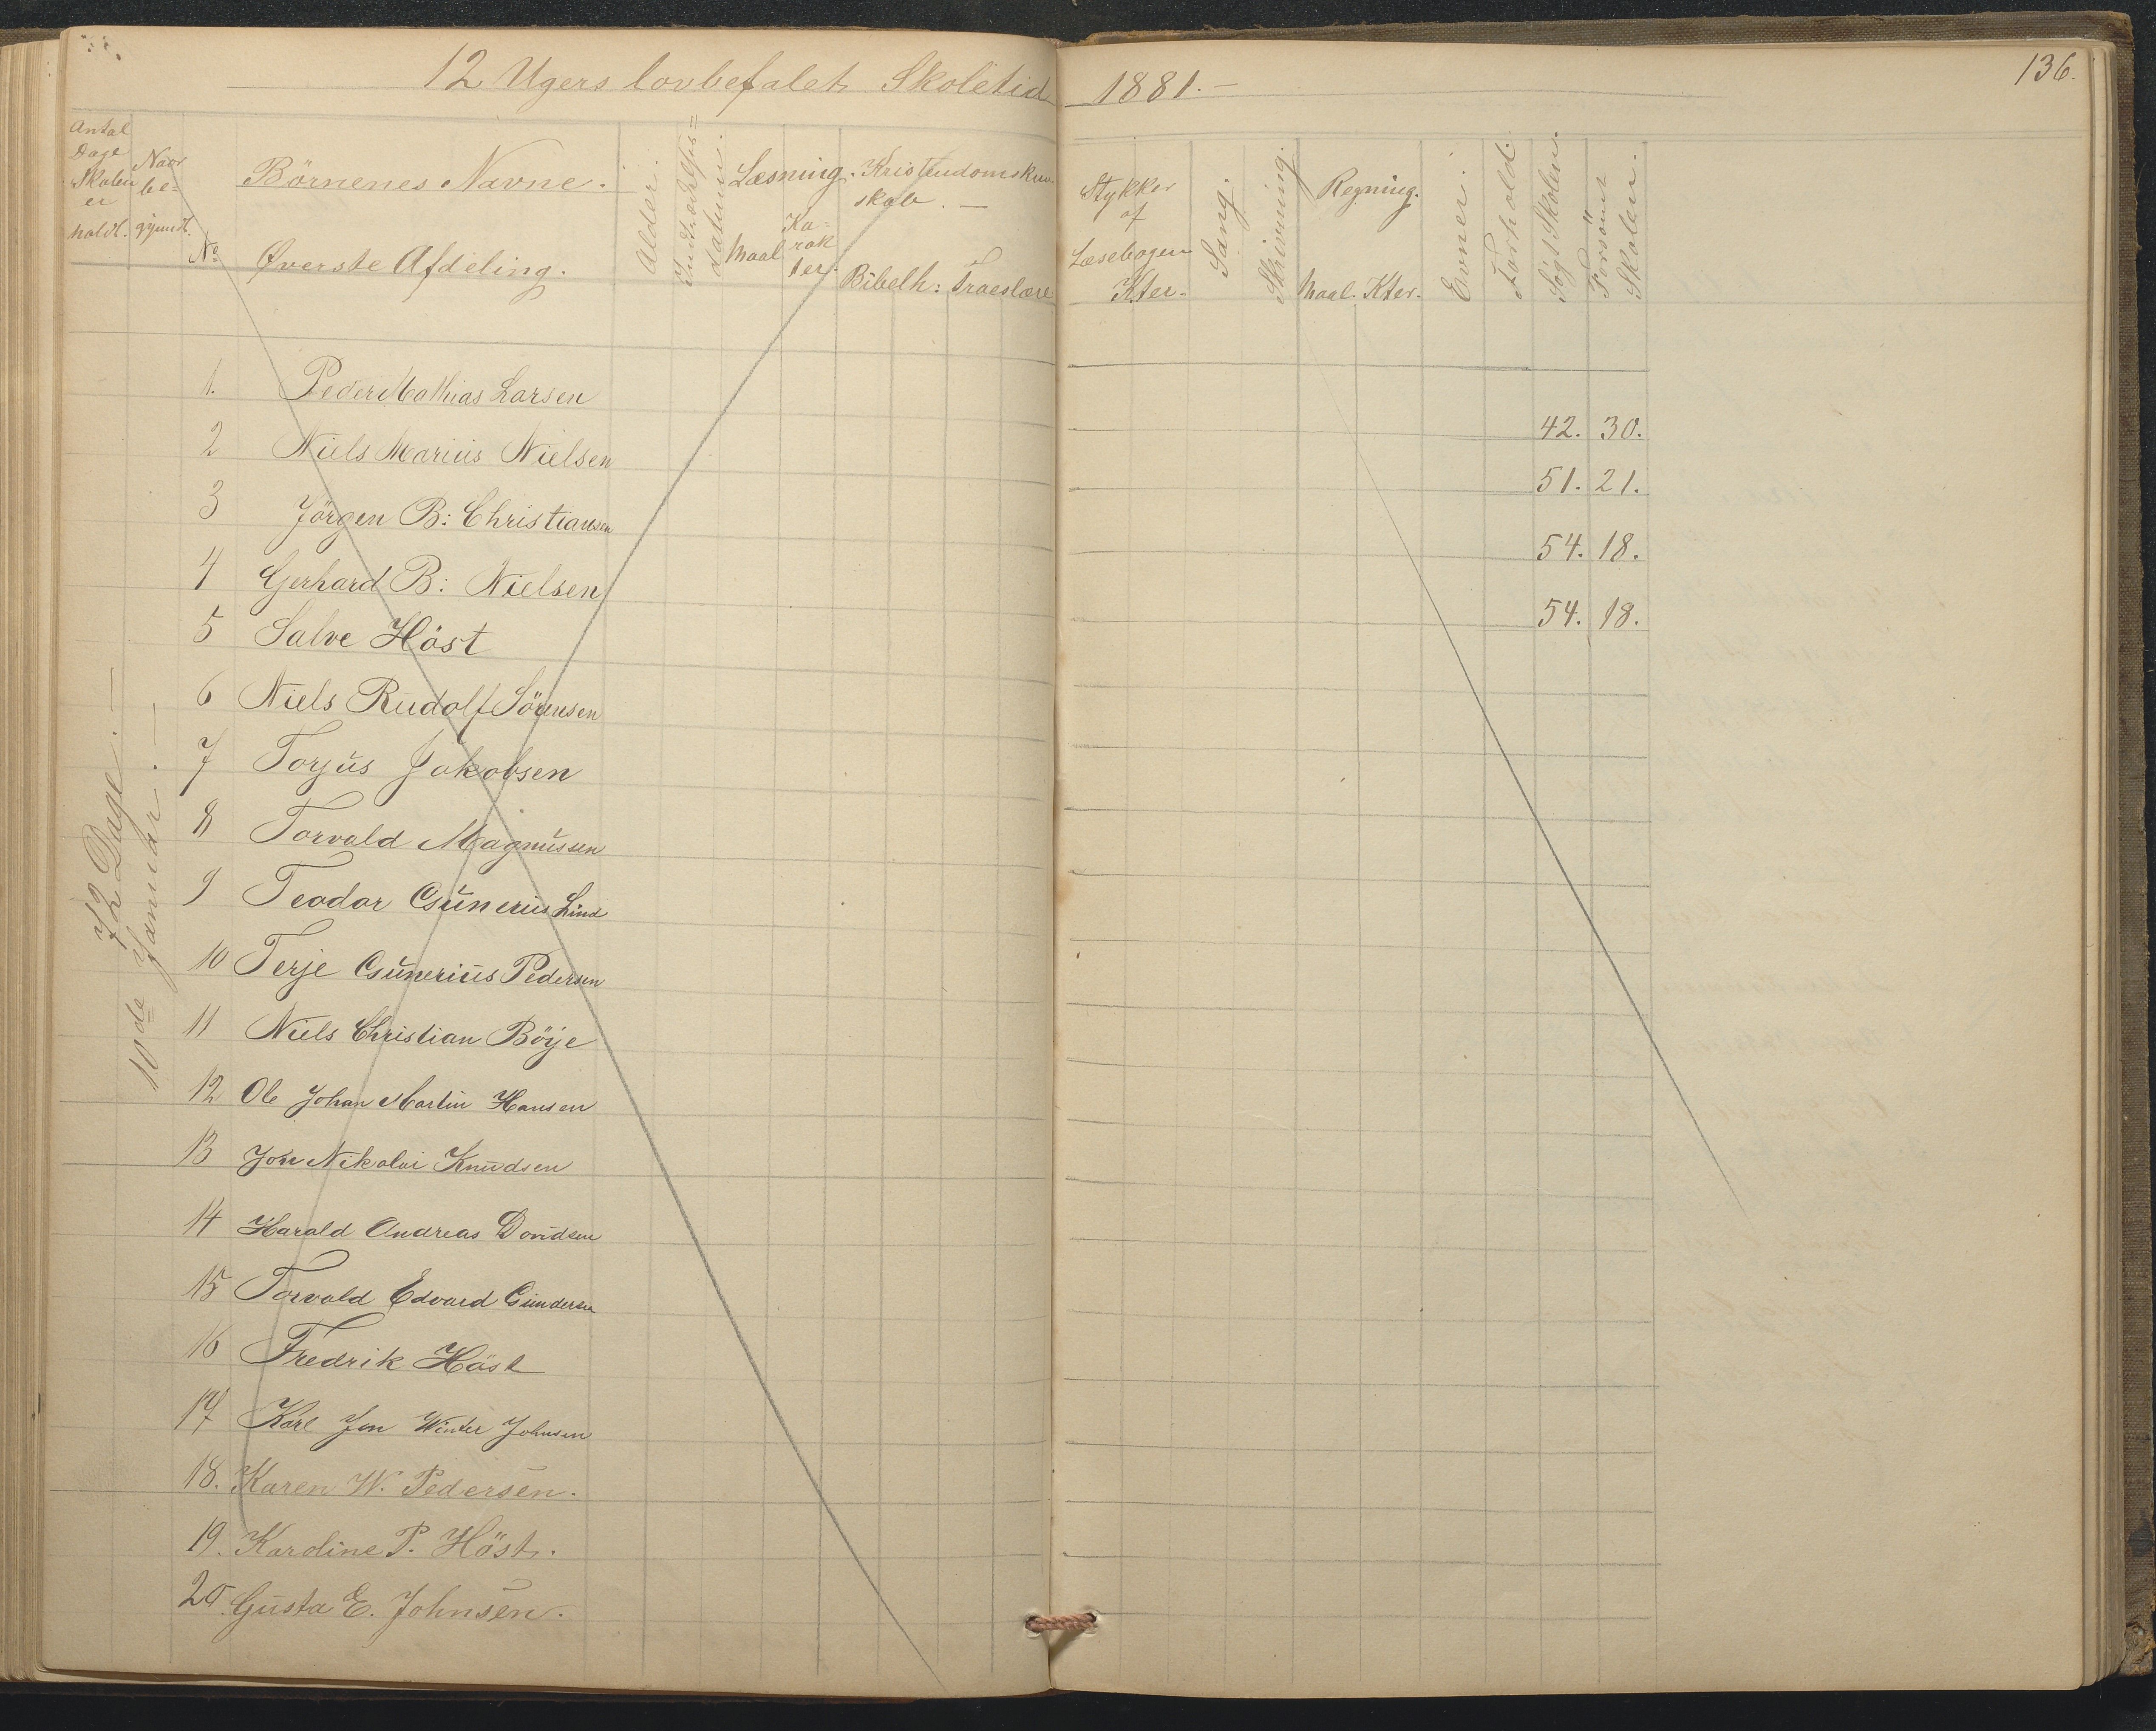 12 Ugers lovbefalet Skoletid 1881.–
136.
Antal Dage Skolen er holdt.
Naar be= gyndt.
No
Börnenes Navne.
Øverste Afdeling.
Alder.
Indtrædelses= datum.
Læsning.
Maal
Ka= rak ter.
Kristendomskun skab. –
Bibelh:
Troeslære
Stykker af Læsebogen
Kter.
Sang.
Skrivning.
Regning.
Maal.
Kter.
Evner.
Forhold.
Søgt Skolen.
Forsömt Skolen.
72 Dage. –
10de Januar. –
1. Peder Mathias Larsen
2 Niels Marius Nielsen
3 Jörgen B: Christiansen
4 Gerhard B: Nielsen
5 Salve Höst
6 Niels Rudolf Sörensen
7 Torjus Jakobsen
8 Torvald Magnussen
9 Teodor Gunerius Lind
10 Terje Gunerius Pedersen
11 Niels Christian Böije
12 Ole Johan Martin Hansen
13 Jon Nikolai Knudsen
14 Harald Andreas Davidsen
15 Torvald Edvard Gundersen
16 Fredrik Höst
17 Karl Jon Winter Johnsen
18. Karen W. Pedersen.
19. Karoline P. Höst.
20. Gusta E. Johnsen.
42. 30.
51. 21.
54. 18.
54. 18.